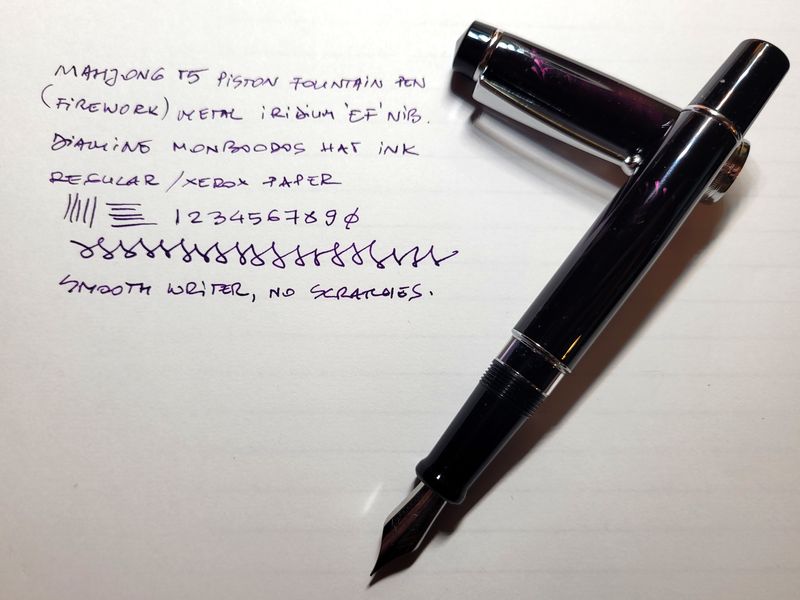 MAHJONG T5 PISTON FOUNTAIN PEN
(FIREWORK) METAL IRIDIUM 'EF' NIB.
DIAMINE MONBODDOS HAT INK
REGULAR / XEROX PAPER
1234567890
SMOOTH WRITER, NO SCRATCHIES.